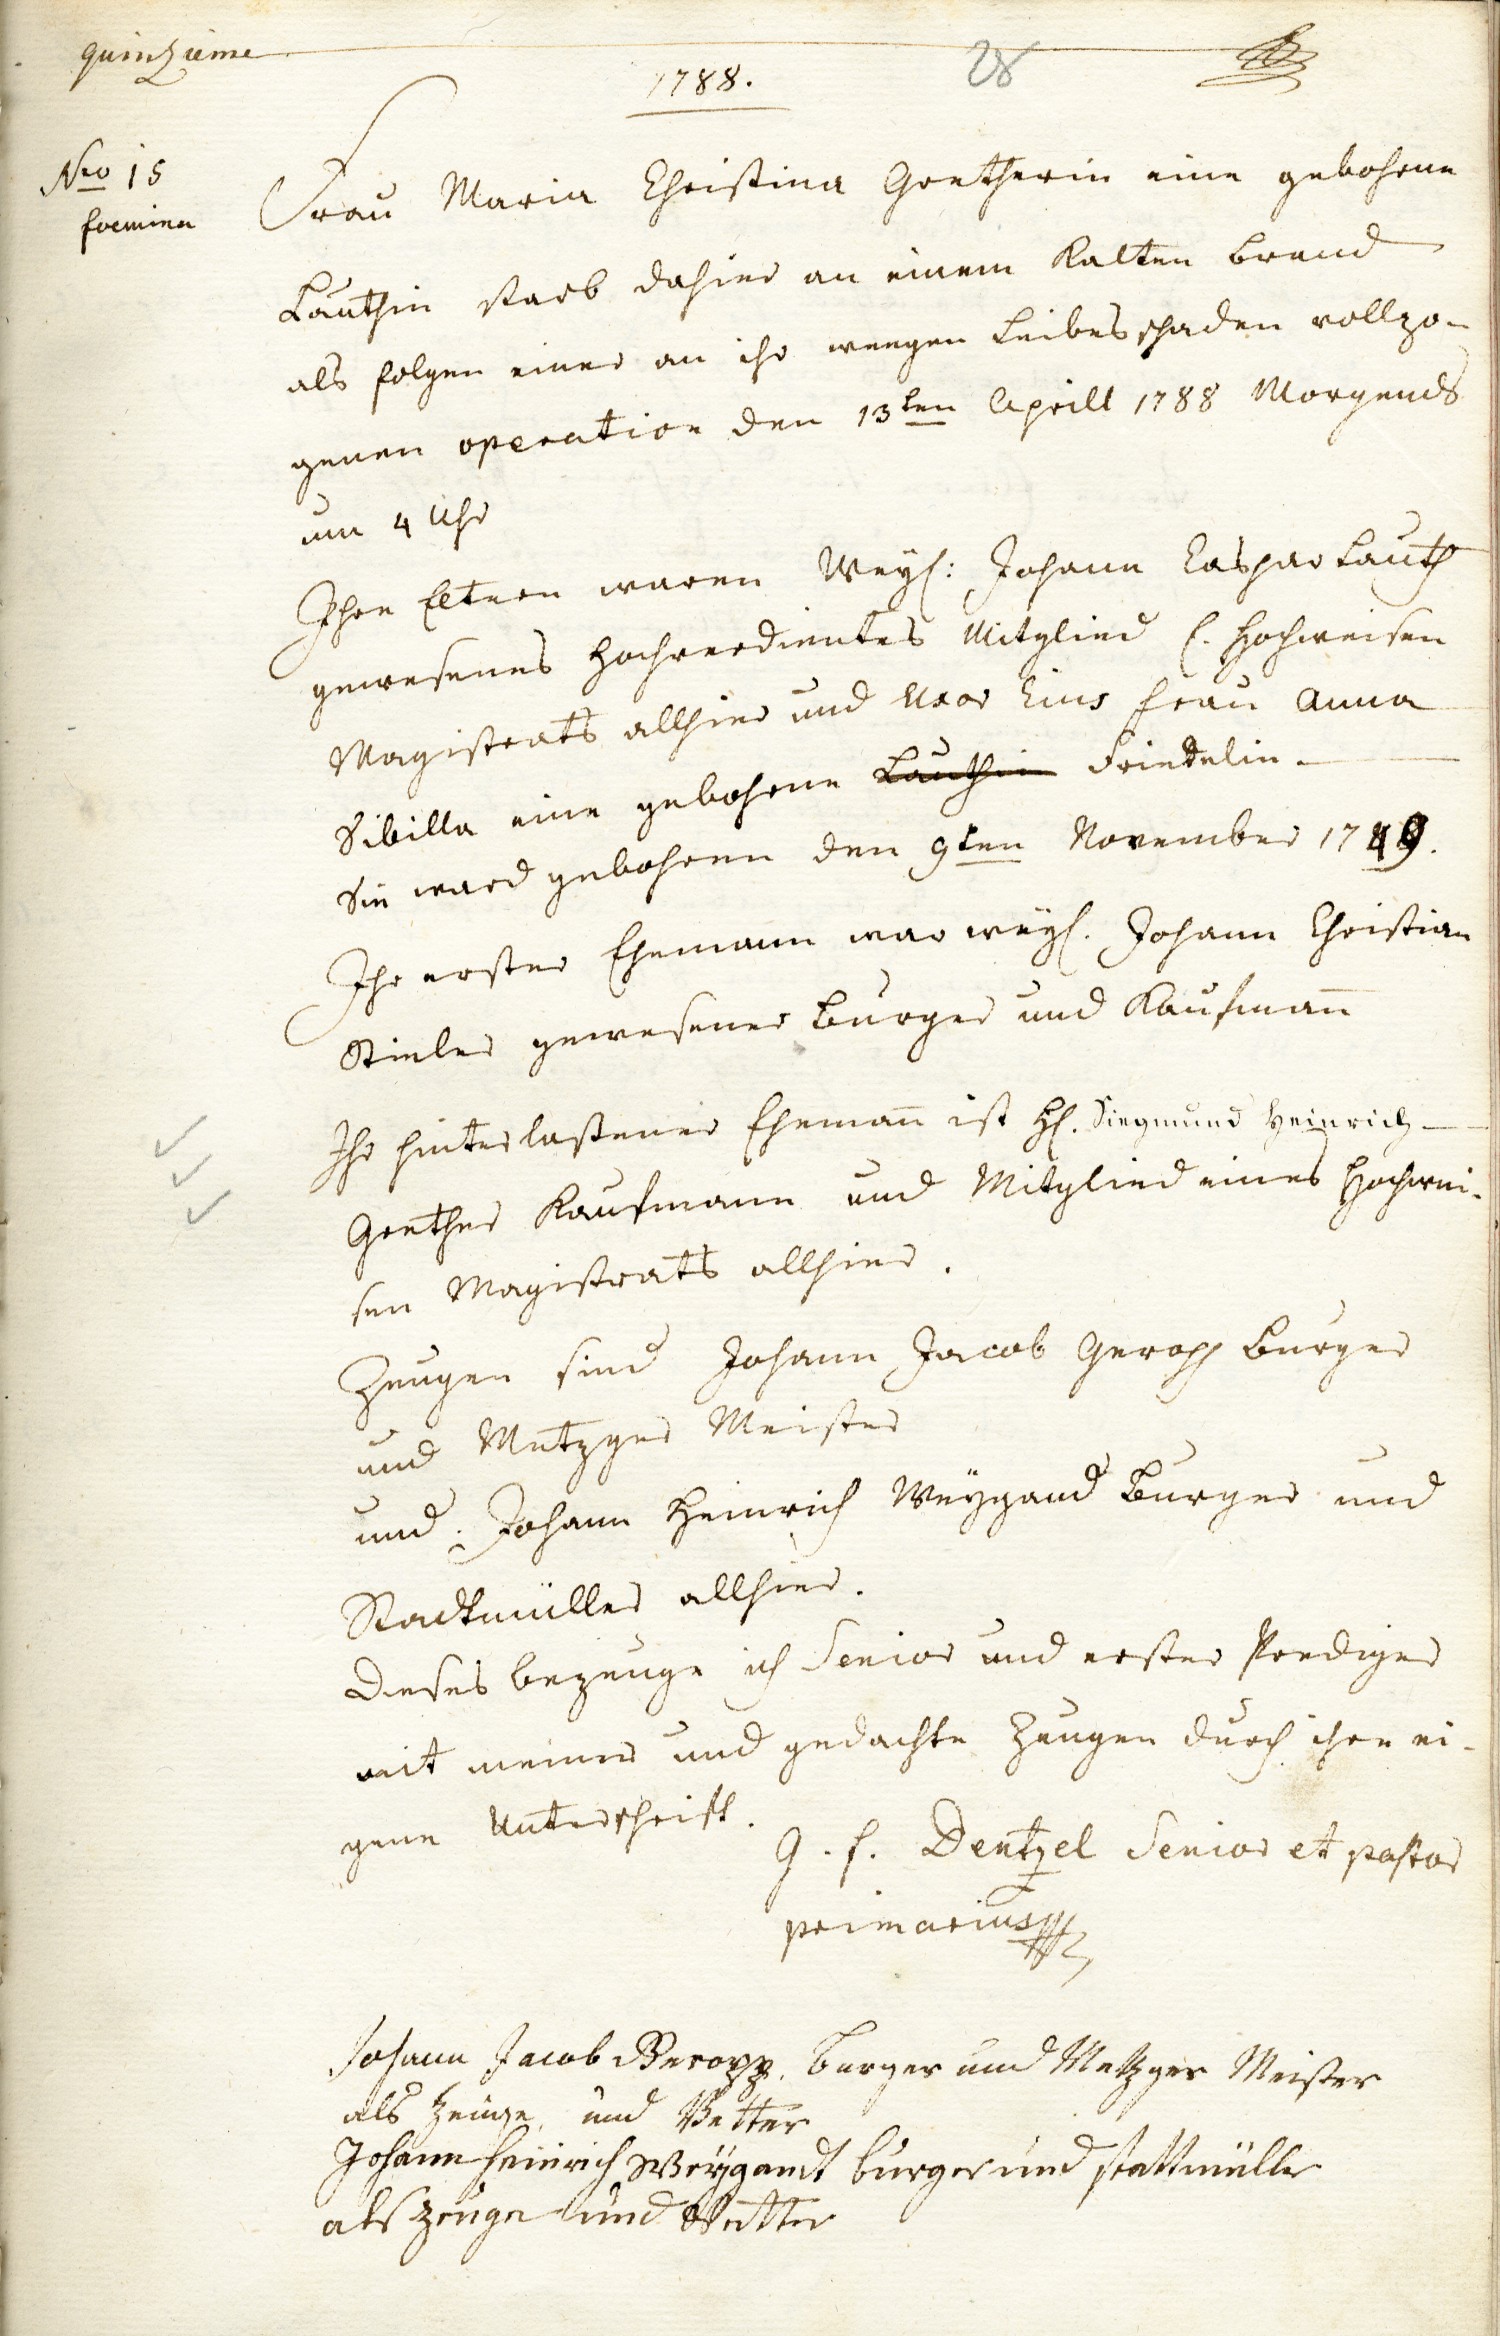 quinzieme
28
1788.
Nro 15
foemina
Frau Maria Christina Goetherin eine gebohrne
Lauthin starb dahier an einem Kalten Brand
als folgen einer an ihr weegen Leibesschaden vollzo-
genen operation den 13ten Aprill 1788 Morgends
um 4 Uhr
Ihre Eltern waren Weyl: Johann Caspar Lauth
gewesenes Hochverdientes Mitglied E. Hochweisen
Magistrats allhier und Uxor Eius Frau Anna
Sibilla eine gebohrne Lauthin Friedelin.
Sie ward gebohren den 9ten November 1749.
Ihr erster Ehemann war weyl. Johann Christian
Stieler gewesener Burger und Kaufmañ
Ihr hinterlaßener Ehemañ ist H. Siegmund Heinrich
Goether Kaufmann und Mitglied eines Hochwei-
sen Magistrats allhier.
Zeugen sind Johann Jacob Geropp Burger
und Metzger Meister
und Johann Heinrich Weygand Burger und
Stadtmüller allhier.
Dieses bezeuge ich Senior und erster Prediger
mit meiner und gedachte Zeugen durch ihre ei-
gene Unterschrift.
G. F. Dentzel Senior et pastor
primarius
Johann Jacob Geropp. Burger und Metzger Meister
als Zeuge und Vetter
Johann Heinrich Weygandt burger und stattmüller
als Zeuge und Vetter